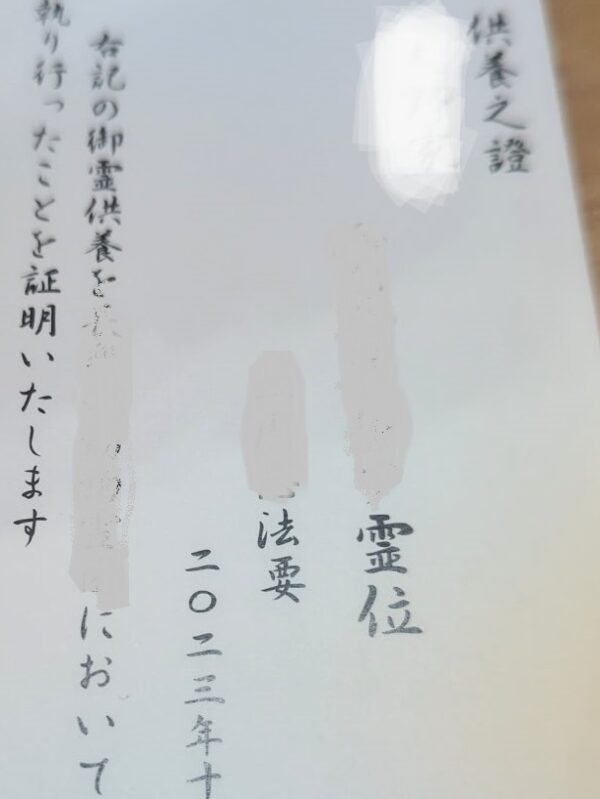 供養之證
霊位
法要
二〇二三年十
右記の御霊供養を
において
執り行ったことを証明いたします